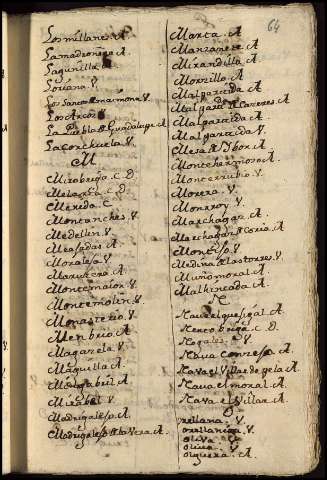 64
Los millanes. A.
La madronera. A.
Lagunilla. A.
Loriana. V.
Los Santos de maimona. V.
Los Arcos.
La Puebla de Guadalupe. A.
La corchuela. V.
M
Mirabriga. C. D.
C. D.
Merida. C.
Montanches. V.
Medellin. V.
Measadas. A.
Morales. V.
A.
Montemaior. V.
Montemolin. V.
Monasterio. V.
Membrio. A.
Magazela. V.
Maguilla. A.
A.
Mirabel. V.
Madrigalejo. A.
Madrigalejo de la Vera. A.
Marta. A
Manzanete. A
Mirandilla. A.
Morzillo. A.
Malpartida. A
Malpartida de Caceres. A.
Malpartida. A.
Malpartida. V.
Mesa de Ybor. A.
Montehermoso. A.
Monterrubio. V.
Morera. V.
Monrroy. V.
Marchagaz. A.
Marchagaz de Coria. A.
Montijo. V.
Medina de las torres. V.
Muñomoral. A.
Malhincada. A.
N
A.
Nertobriga. C. D.
Nogales. V
Nava conzejo. A
Nava el Villar de gela. A
Nava el moral. A.
Nava el Villar. A
O
orellana. V
orellanita. V.
oliva. V.
oliva. V.
A.